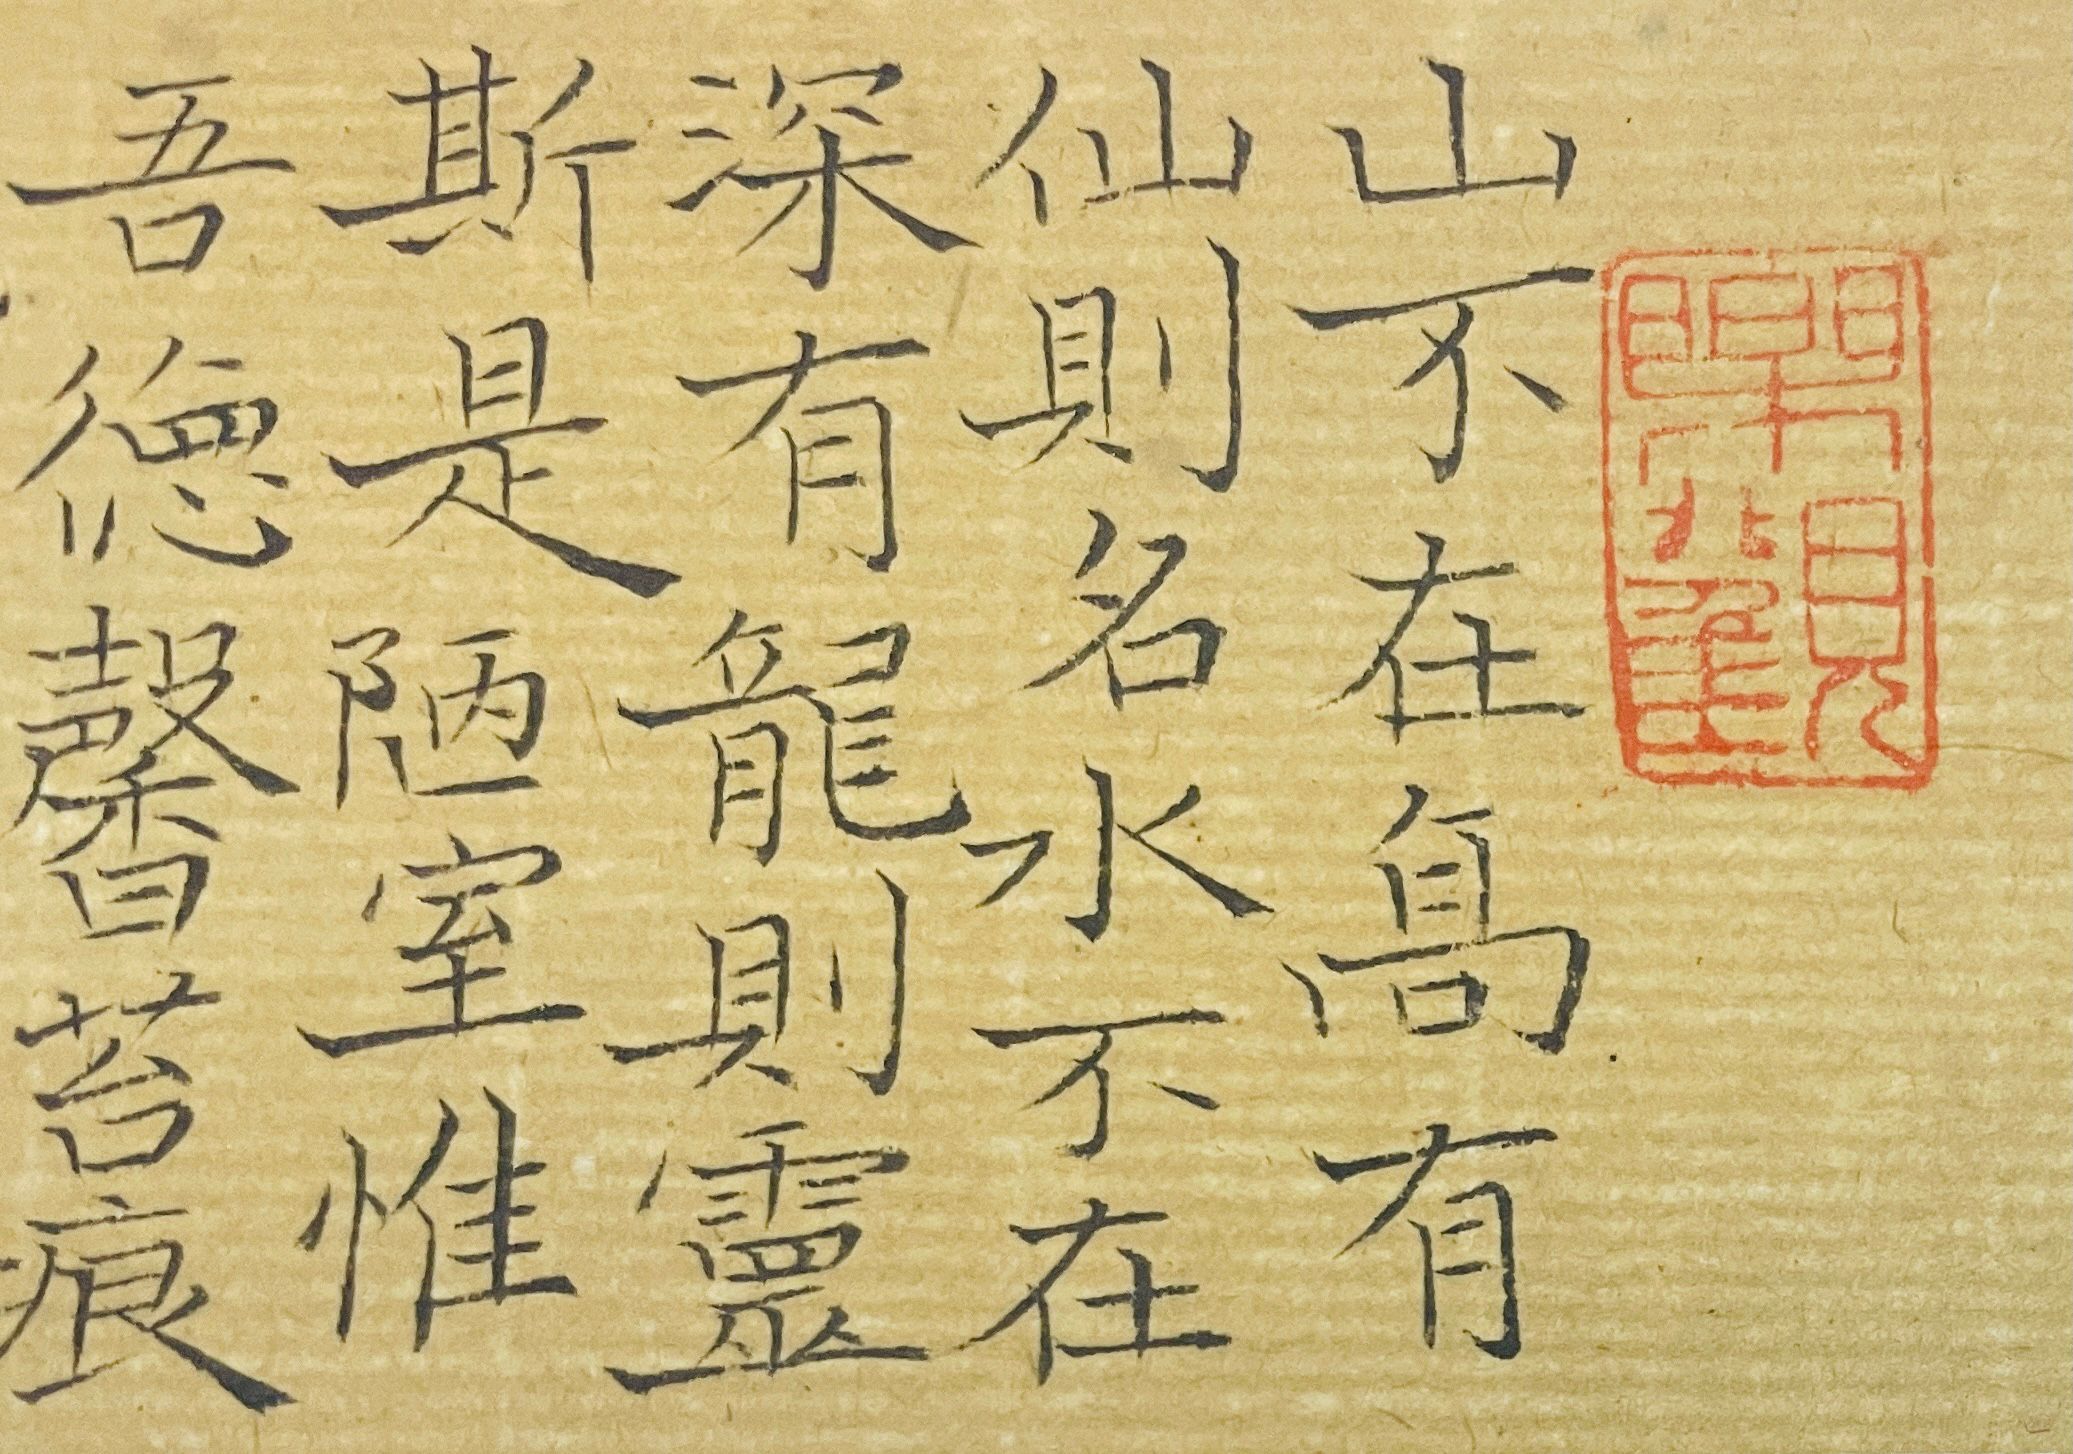 山不在髙有
仙則名水不在
深有龍則靈
斯是陋室惟
吾徳馨苔痕